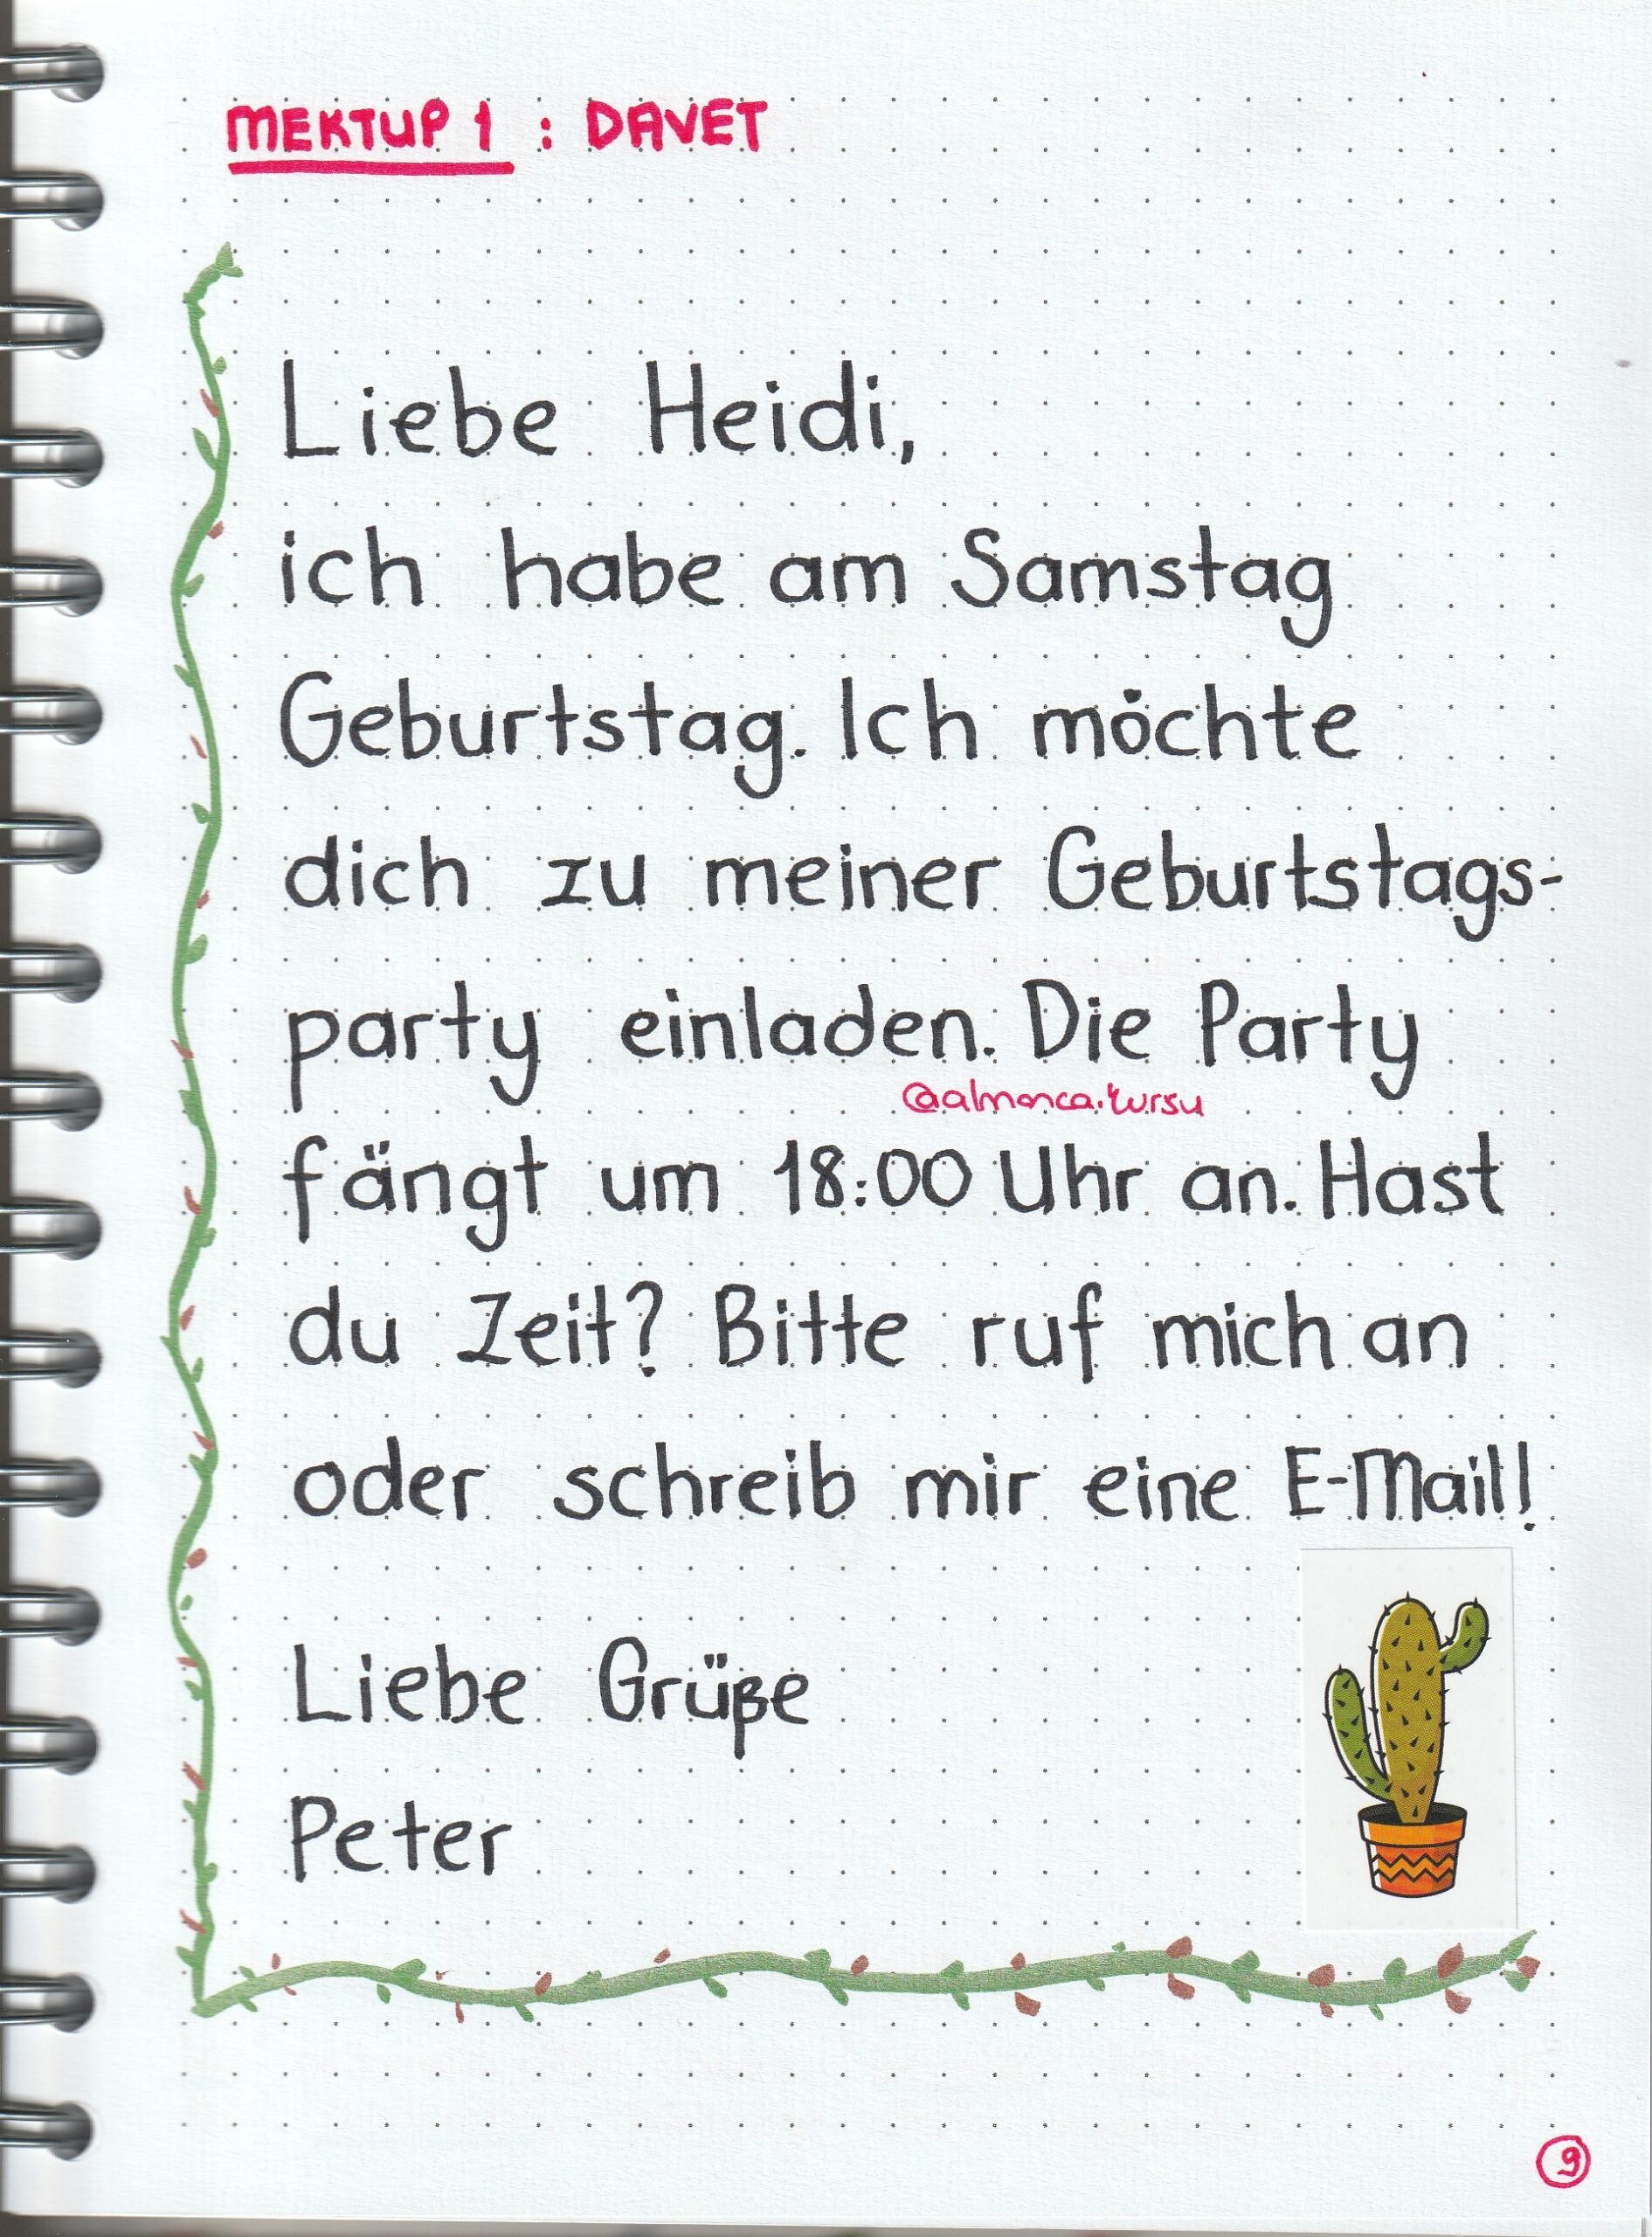 MEKTUP 1 : DAVET
Liebe Heidi,
ich habe am Samstag
Geburtstag. Ich möchte
dich zu meiner Geburtstags-
party einladen. Die Party
@almanca.kursu
fängt um 18:00 Uhr an. Hast
du Zeit? Bitte ruf mich an
oder schreib mir eine E-Mail!
Liebe Grüße
Peter
9